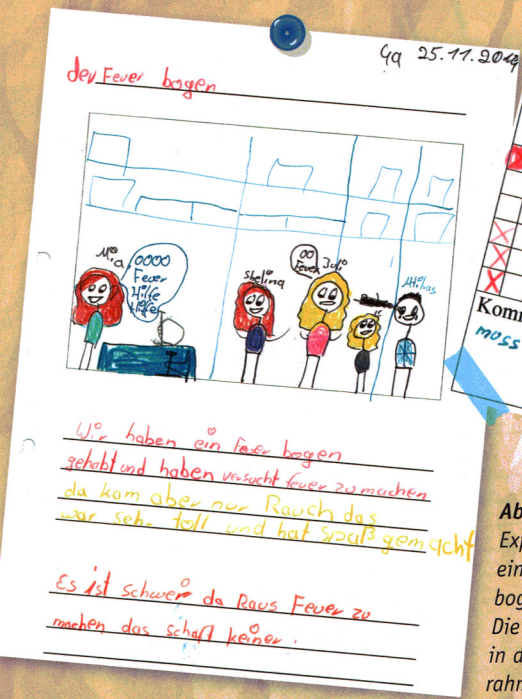 4a 25.11.2014
der Feuer bogen
Mia
0000
Feuer
Hilfe
Hilfe
Shelina
00
Feuer
Juli
Wir haben ein Feuer bogen
gehabt und haben versucht feuer zu machen
da kam aber nur Rauch das
war sehr toll und hat spaß gemacht
Es ist schwer da Raus Feuer zu
machen das schaft keiner.
Kom
muss
Ab
Exp
ein
bog
Die
in d
rahm